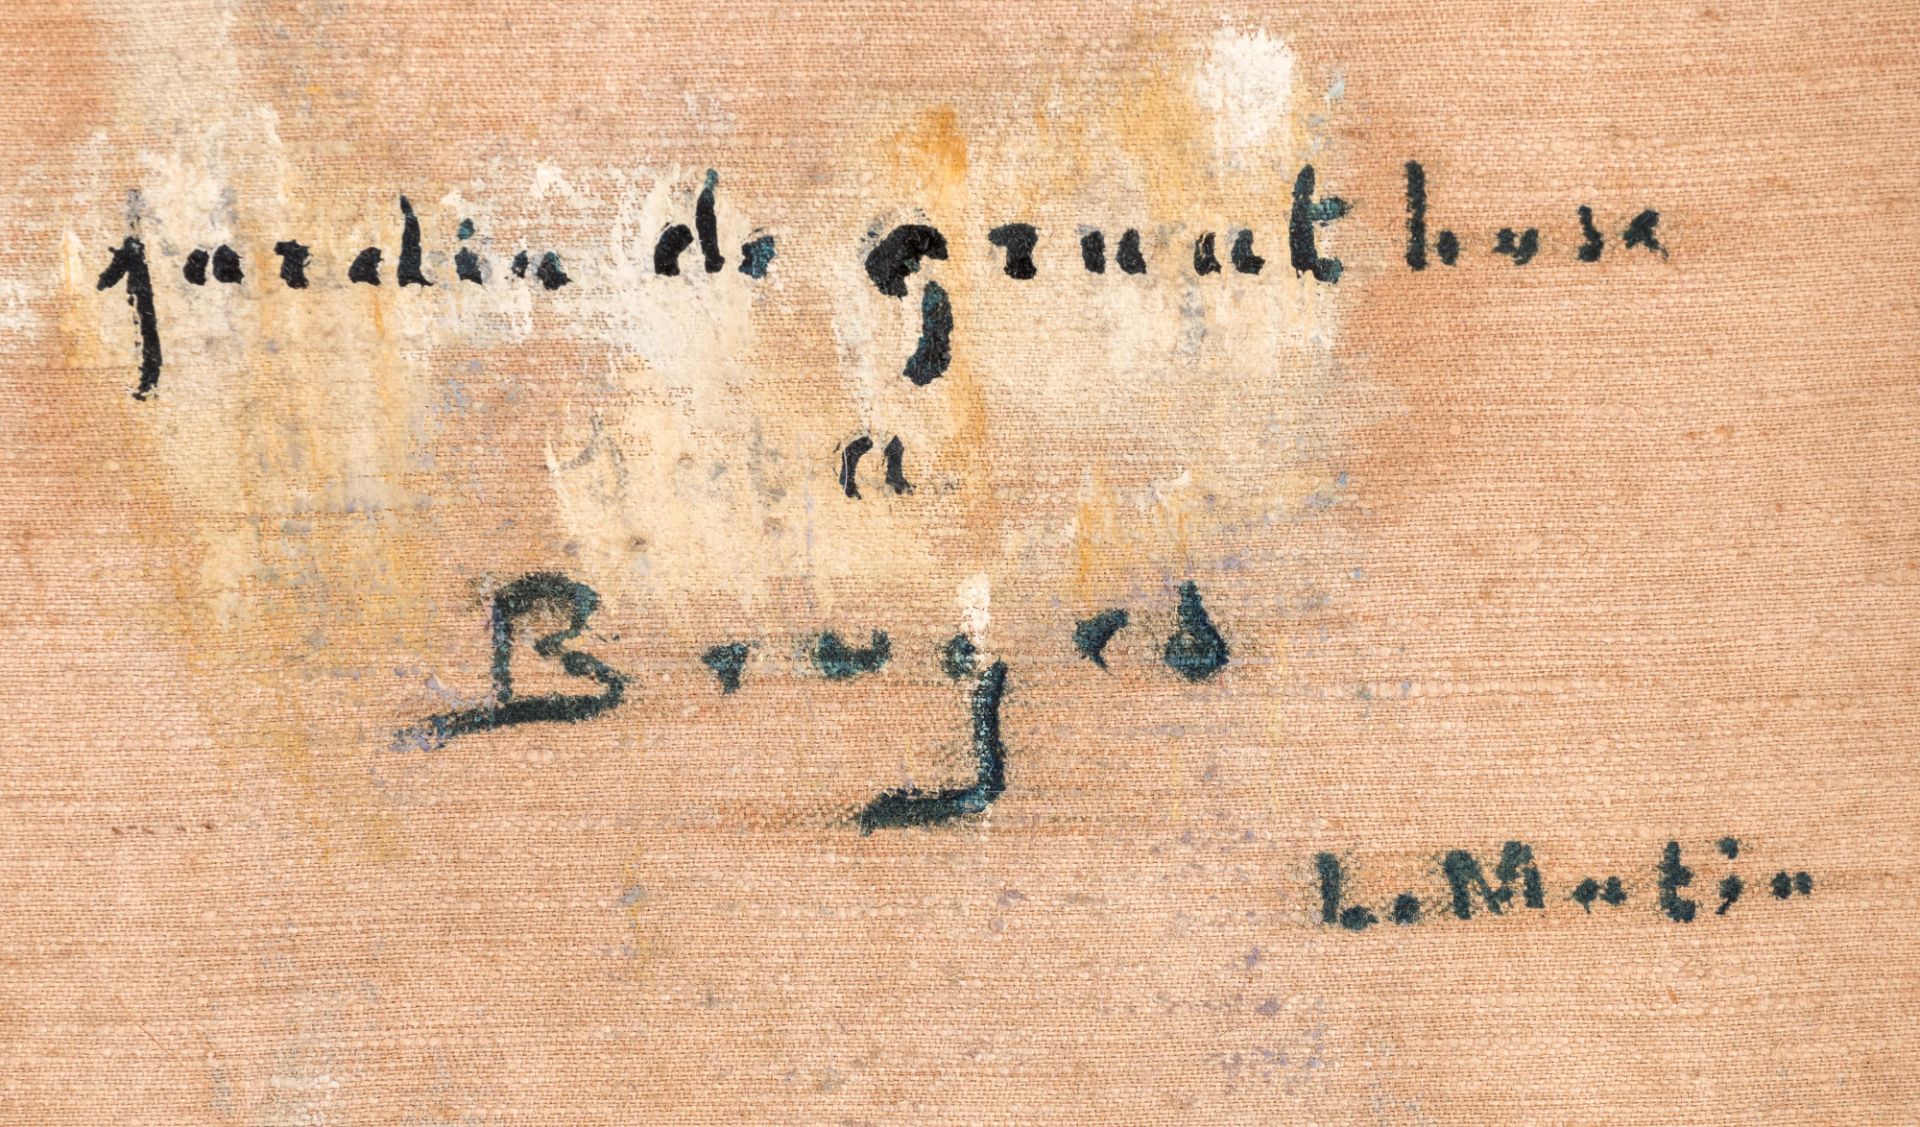 jardin de gruut huse
a
Bruges
L. Matin